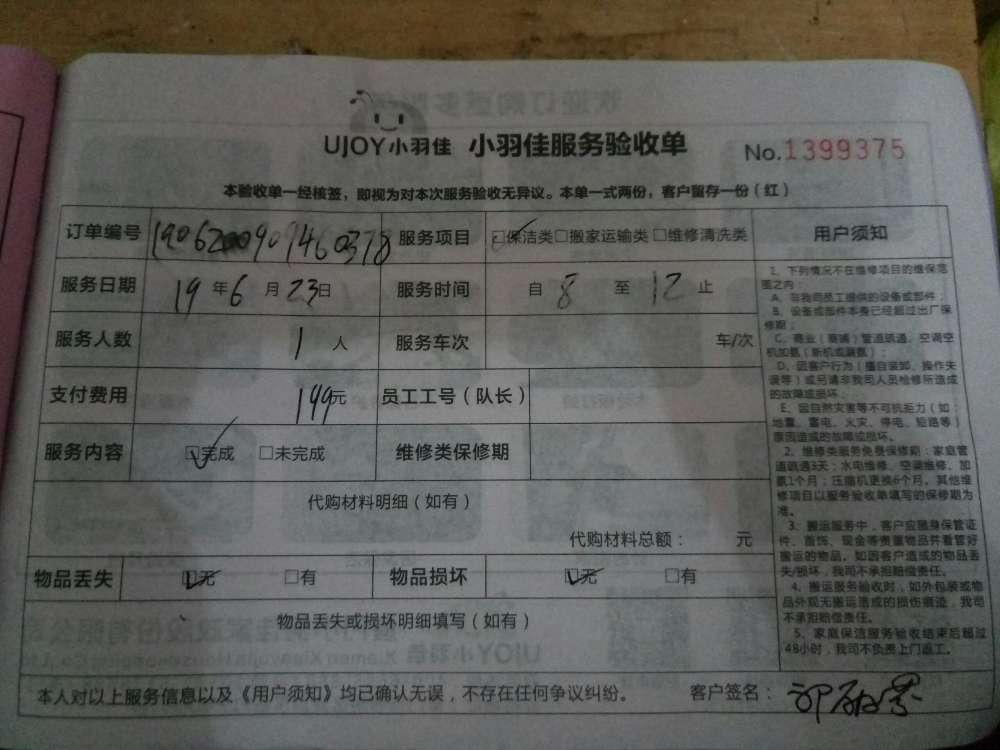 UJOY小羽佳 小羽佳服务验收单 No.1399375
本验收单一经核签，即视为对本次服务验收无异议。本单一式两份，客户留存一份（红）
订单编号 服务项目 □保洁类□搬家运输类□维修清洗类
服务日期 19年6月23日 服务时间 自8至12止
服务人数 1人 服务车次 车/次
支付费用 199元 员工工号（队长）
服务内容 □完成 □未完成 维修类保修期
代购材料明细（如有）
代购材料总额： 元
物品丢失 □无 □有 物品损坏 □无 □有
物品丢失或损坏明细填写（如有）
用户须知
1、下列情况不在维修项目的维保范
围之内：
A、非我司员工提供的设备或部件；
B、设备或部件本身已经超过出厂保
修期；
C、商业（商铺）管道疏通、空调空
机加氨（新机或漏氨）；
D、因客户行为（擅自装卸、操作失
误等）或另请非我司人员检修所造成
的故障或损坏；
E、因自然灾害等不可抗拒力（如：
地震、雷电、火灾、停电、短路等）
原因造成的故障或损坏。
2、维修类服务免费保修期：家庭管
道疏通3天；水电维修、空调维修、加
氨1个月；压缩机更换6个月。其他维
修项目以服务验收单填写的保修期为
准。
3、搬运服务中，客户应随身保管证
件、首饰、现金等贵重物品并看管好
搬运的物品。如因客户造成的物品丢
失/损坏，我司不承担赔偿责任。
4、搬运服务验收时，如外包装或物
品外观无搬运造成的损伤痕迹，我司
不承担赔偿责任。
5、家庭保洁服务验收结束后超过
48小时，我司不负责上门返工。
本人对以上服务信息以及《用户须知》均已确认无误，不存在任何争议纠纷。 客户签名：